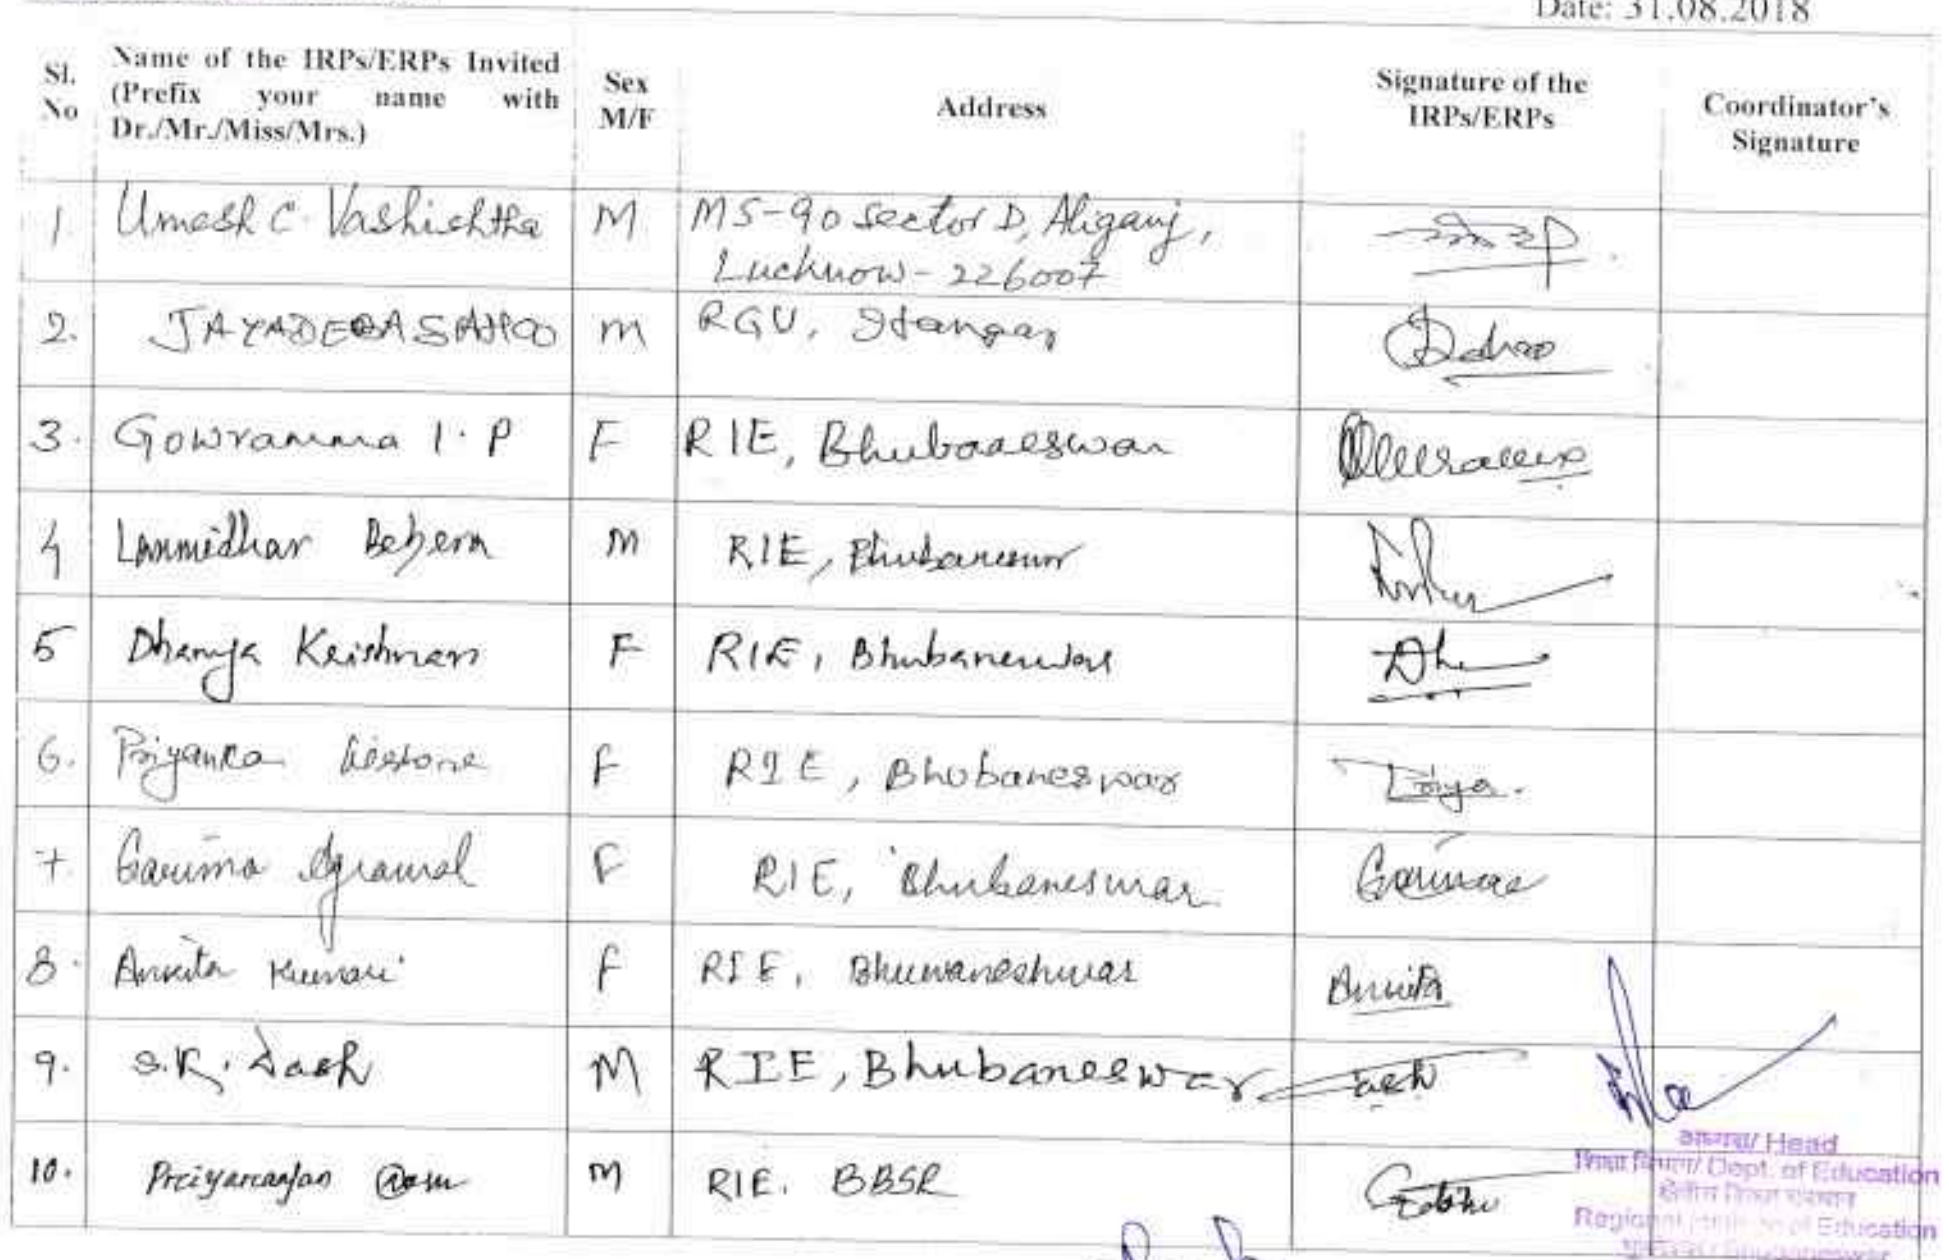 Date: 31.08.2018
Sl. No
Name of the IRPs/ERPs Invited
(Prefix your name with
Dr./Mr./Miss/Mrs.)
Sex M/F
Address
Signature of the IRPs/ERPs
Coordinator's Signature
1. Umesh C. Vashishtha M MS-90 Sector D, Aliganj,
Lucknow - 226007
2. JAYADEBA SAHOO M RGU, Itanagar Sahoo
3. Gowramma I. P F RIE, Bhubaneswar
4 Laxmidhar Behera M RIE, Bhubaneswar
5 Dhanya Krishnan F RIE, Bhubaneswar Dh
6. Priyanka F RIE, Bhubaneswar Priya.
7 Garima Agrawal F RIE, Bhubaneswar Garima
8. Ankita Kumari F RIE, Bhuwaneshwar Ankita
9. S.K. Dash M RIE, Bhubaneswar Dash
10. Priyaranjan M RIE. BBSR
अध्यक्ष/ Head
शिक्षा विभाग/ Dept. of Education
क्षेत्रीय शिक्षा संस्थान
Regional Institute of Education